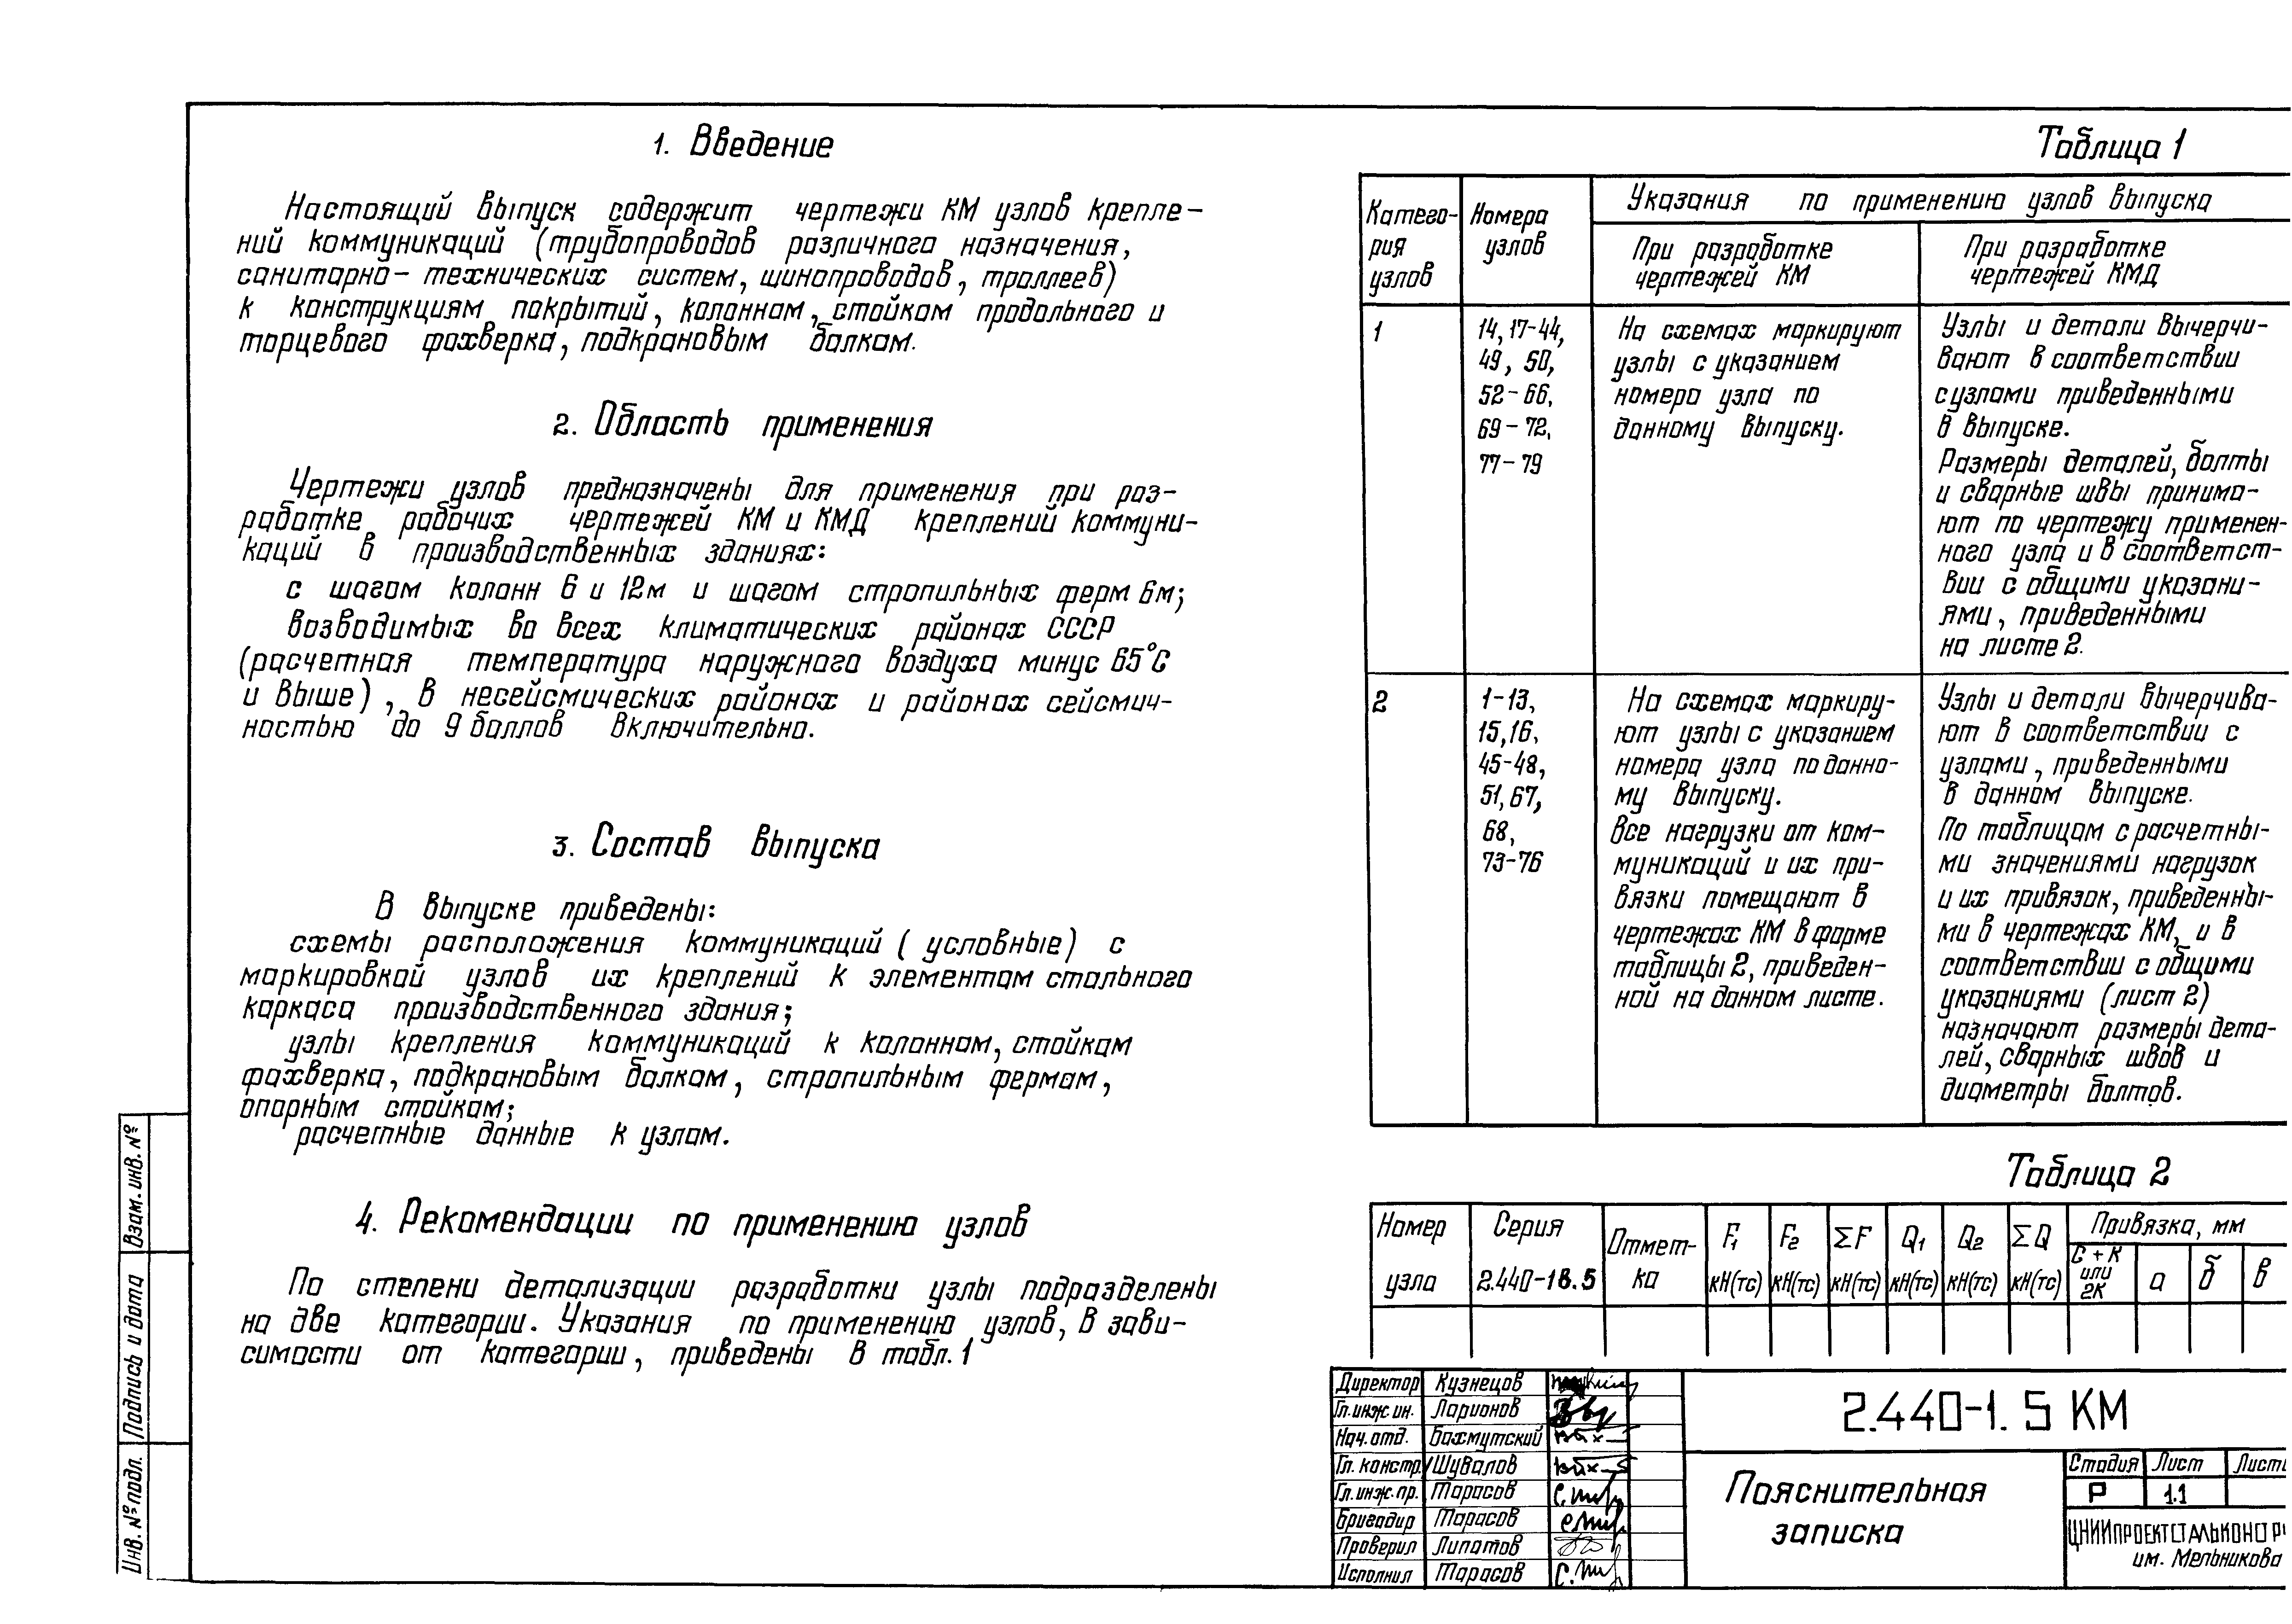 1. Введение
Настоящий выпуск содержит чертежи КМ узлов крепле-
ний коммуникаций (трубопроводов различного назначения,
санитарно-технических систем, шинопроводов, троллеев)
к конструкциям покрытий, колоннам, стойкам продольного и
торцевого фахверка, подкрановым балкам.
2. Область применения
Чертежи узлов предназначены для применения при раз-
работке рабочих чертежей КМ и КМД креплений коммуни-
каций в производственных зданиях:
с шагом колонн 6 и 12м и шагом стропильных ферм 6м;
возводимых во всех климатических районах СССР
(расчетная температура наружного воздуха минус 65°С
и выше), в несейсмических районах и районах сейсмич-
ностью до 9 баллов включительно.
3. Состав выпуска
В выпуске приведены:
схемы расположения коммуникаций (условные) с
маркировкой узлов их креплений к элементам стального
каркаса производственного здания;
узлы крепления коммуникаций к колоннам, стойкам
фахверка, подкрановым балкам, стропильным фермам,
опорным стойкам;
расчетные данные к узлам.
4. Рекомендации по применению узлов
По степени детализации разработки узлы подразделены
на две категории. Указания по применению узлов, в зави-
симости от категории, приведены в табл.1
Таблица 1
Катего-
рия
узлов
Номера
узлов
Указания по применению узлов выпуска
При разработке
чертежей КМ
При разработке
чертежей КМД
1
14, 17-44,
49, 50,
52-66,
69-72,
77-79
На схемах маркируют
узлы с указанием
номера узла по
данному выпуску.
Узлы и детали вычерчи-
вают в соответствии
с узлами приведенными
в выпуске.
Размеры деталей, болты
и сварные швы принима-
ют по чертежу применен-
ного узла и в соответст-
вии с общими указани-
ями, приведенными
на листе 2.
2
1-13,
15,16,
45-48,
51,67,
68,
73-76
На схемах маркиру-
ют узлы с указанием
номера узла по данно-
му выпуску.
Все нагрузки от ком-
муникаций и их при-
вязки помещают в
чертежах КМ в форме
таблицы 2, приведен-
ной на данном листе.
Узлы и детали вычерчива-
ют в соответствии с
узлами, приведенными
в данном выпуске.
По таблицам с расчетны-
ми значениями нагрузок
и их привязок, приведенны-
ми в чертежах КМ, и в
соответствии с общими
указаниями (лист 2)
назначают размеры дета-
лей, сварных швов и
диаметры болтов.
Таблица 2
Номер
узла
Серия
2.440-18.5
Отмет-
ка
F1
кН(тс)
F2
кН(тс)
ΣF
кН(тс)
Q1
кН(тс)
Q2
кН(тс)
ΣQ
кН(тс)
Привязка, мм
С+К
или
2К
а
б
в
Директор Кузнецов
Гл.инж.ин. Ларионов
Нач.отд. Бахмутский
Гл. констр. Шувалов
Гл.инж.пр. Тарасов
Бригадир Тарасов
Проверил Липатов
Исполнил Тарасов
2.440-1.5 КМ
Пояснительная
записка
Стадия Лист Листо
Р 1.1
ЦНИИПРОЕКТСТАЛЬКОНСТР
им. Мельникова
Взам. инв. №
Подпись и дата
Инв. № подл.